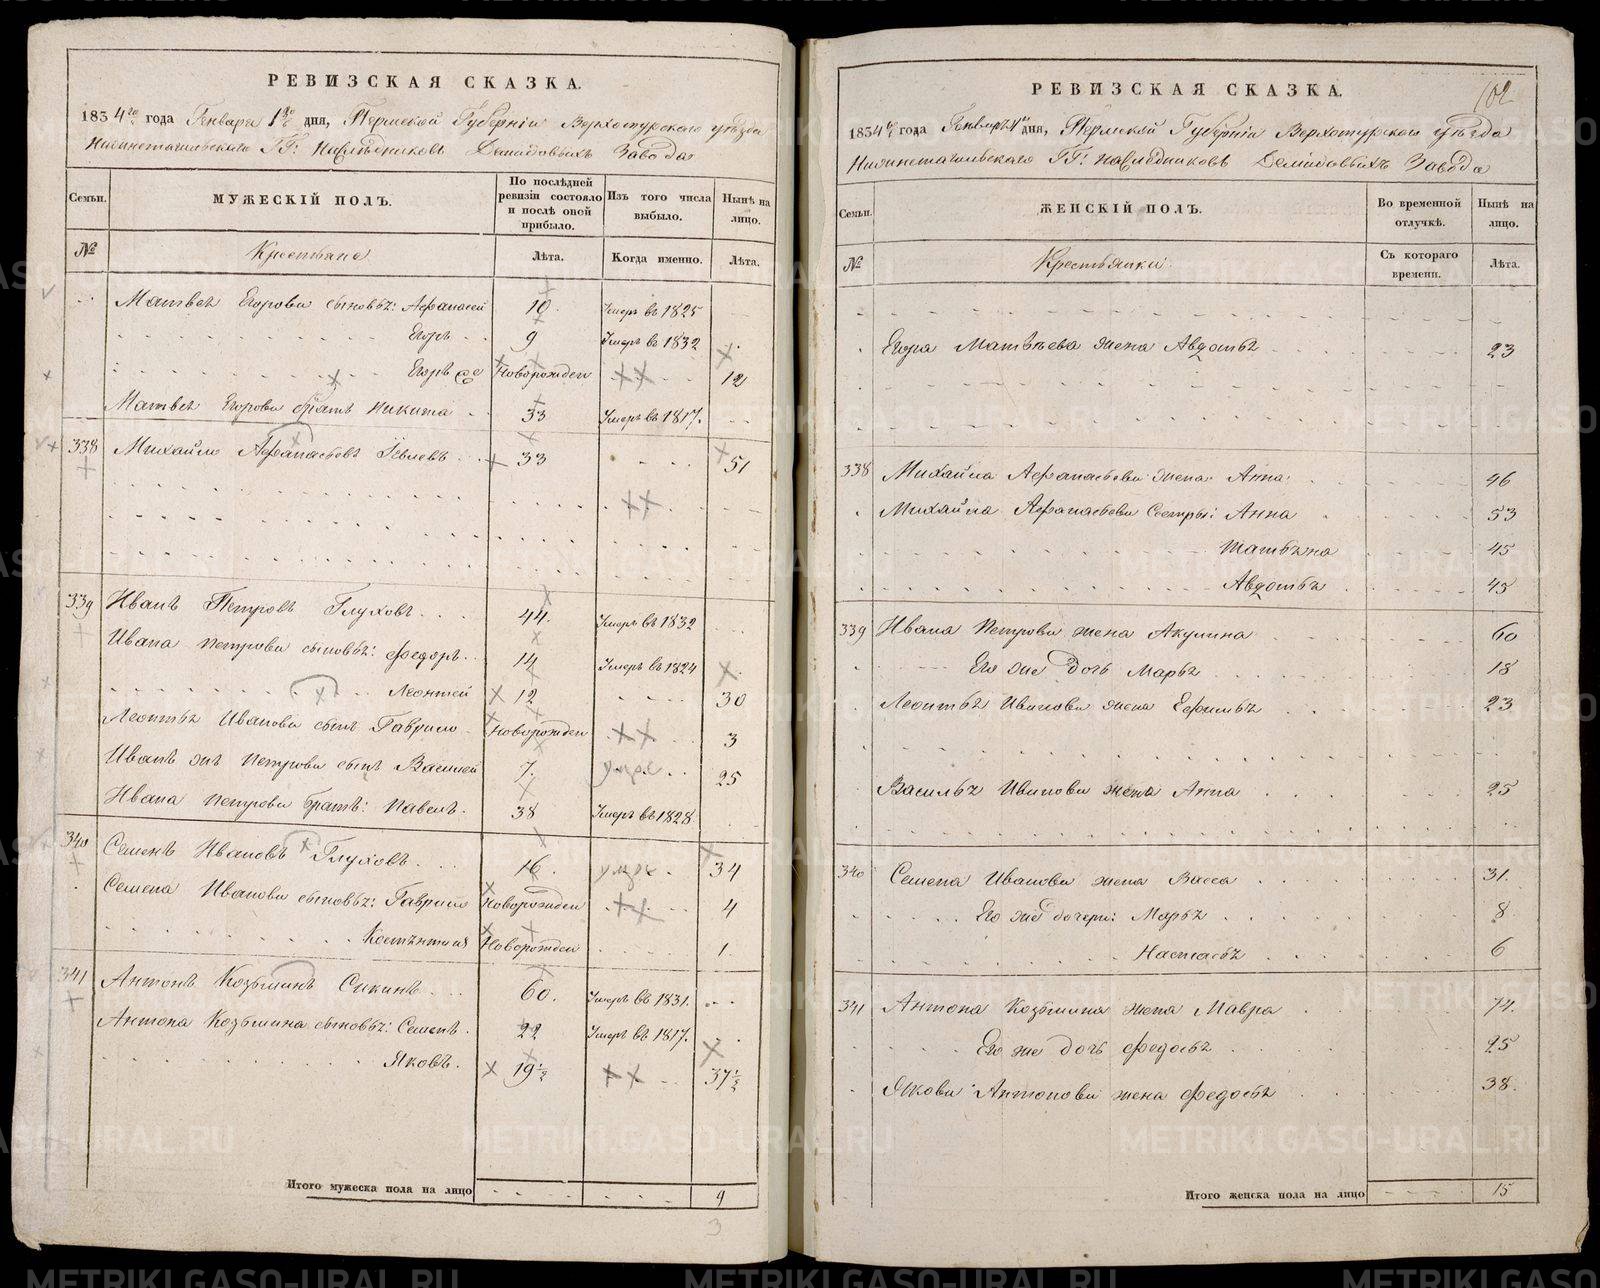 РЕВИЗСКАЯ СКАЗКА.
1834го года Генваря 1го дня, Пермской Губерніи Верхотурского уѣзда
Нижнетагильскаго ГГ: Наслѣдниковъ Демидовыхъ Завода
Семьи.
МУЖЕСКІЙ ПОЛЪ.
По послѣдней ревизіи состояло и послѣ оной прибыло.
Изъ того числа выбыло.
Нынѣ на лицо.
№
Крестьяне
Лѣта.
Когда именно.
Лѣта.
Матвея Егорова сыновья: Афанасей 10. Умеръ въ 1825
Егоръ 9 Умеръ въ 1832
Егоръ же Новорожден 12
Матвея Егорова братъ Никита 33 Умеръ въ 1817.
338 Михайло Афанасьевъ 33 51
339 Иванъ Петровъ Глуховъ 44. Умеръ въ 1832
Ивана Петрова сыновья: Федоръ 14 Умеръ въ 1824
Леонтей 12 30
Леонтья Иванова сынъ Гаврило Новорожден 3
Иванъ же Петрова сынъ Василей 7. умре 25
Ивана Петрова братъ: Павелъ 38 Умеръ въ 1828
340 Семенъ Ивановъ Глуховъ 16. умре 34
Семена Иванова сыновья: Гаврило Новорожден 4
Новорожден 1.
341 Антонъ Козьминъ Сикинъ 60. Умеръ въ 1831.
Антона Козьмина сыновья: Семенъ 22 Умеръ въ 1817.
Яковъ 19½ 37½
Итого мужеска пола на лицо 9
3
102
РЕВИЗСКАЯ СКАЗКА.
1834го года Генваря 1го дня, Пермской Губерніи Верхотурскаго уѣзда
Нижнетагильскаго ГГ: Наследниковъ Демидовыхъ Завода
Семьи.
ЖЕНСКІЙ ПОЛЪ.
Во временной отлучкѣ.
Нынѣ на лицо.
№
Крестьянки
Съ котораго времени.
Лѣта.
Егора Матвѣева жена Авдотья 23
338 Михайла Афанасьева жена Анна 46
Михайла Афанасьева Сестры: Анна 53
Татьяна 45
Авдотья 45
339 Ивана Петрова жена Акулина 60
Его же дочь Марья 18
Леонтья Иванова жена Ефимья 23
Василья Иванова жена Анна 25
340 Семена Иванова жена Васса 31.
Его же дочери: Марья 8
Настасья 6
341 Антона Козьмина жена Мавра 74.
Его же дочь Федосья 25
Якова Антонова жена Федосья 38.
Итого женска пола на лицо 15
METRIKI.GASO-URAL.RU